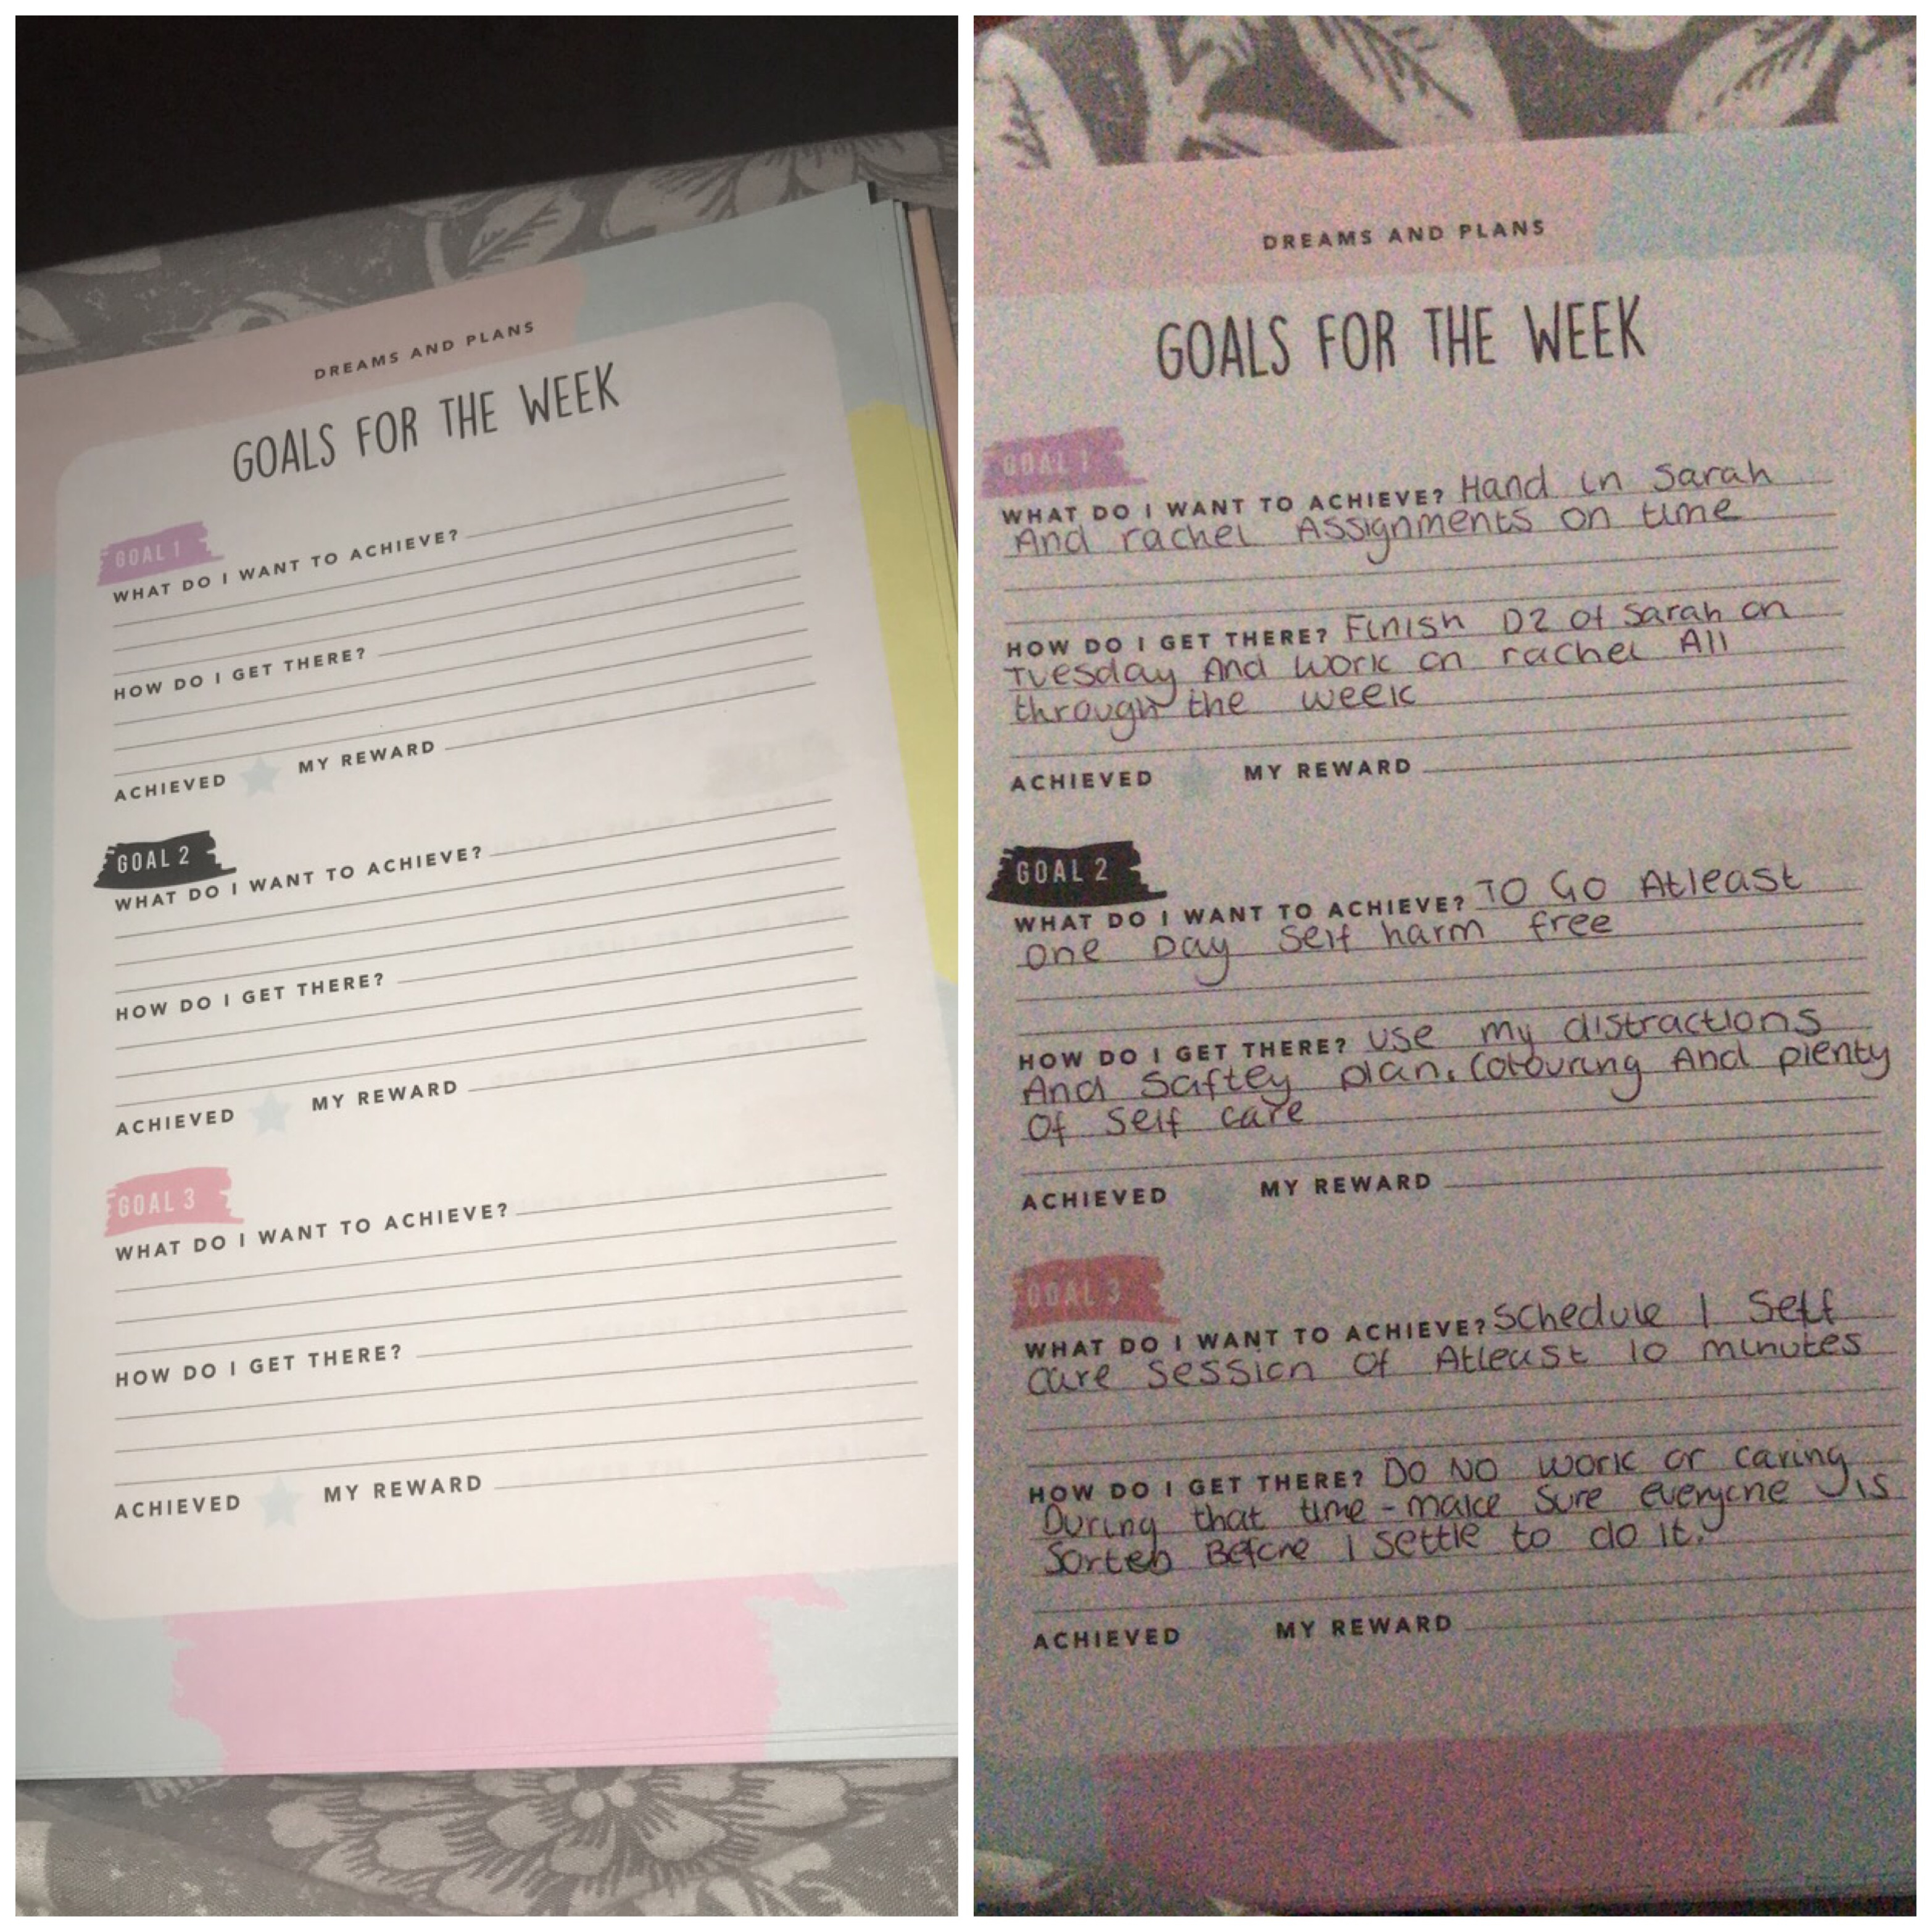 DREAMS AND PLANS
GOALS FOR THE WEEK
GOAL 1
WHAT DO I WANT TO ACHIEVE?
HOW DO I GET THERE?
ACHIEVED MY REWARD
GOAL 2
WHAT DO I WANT TO ACHIEVE?
HOW DO I GET THERE?
ACHIEVED MY REWARD
GOAL 3
WHAT DO I WANT TO ACHIEVE?
HOW DO I GET THERE?
ACHIEVED MY REWARD
DREAMS AND PLANS
GOALS FOR THE WEEK
GOAL 1
WHAT DO I WANT TO ACHIEVE? Hand in Sarah
And rachel Assignments on time
HOW DO I GET THERE? Finish D2 of Sarah on
Tuesday And work on rachel All
through the week
ACHIEVED MY REWARD
GOAL 2
WHAT DO I WANT TO ACHIEVE? TO GO Atleast
one Day Self harm free
HOW DO I GET THERE? use my distractions
And Saftey plan. Colouring And plenty
Of Self care
ACHIEVED MY REWARD
GOAL 3
WHAT DO I WANT TO ACHIEVE? Schedule 1 Self
care session Of Atleast 10 minutes
HOW DO I GET THERE? DO NO work or caring
During that time - make Sure everyone is
Sorted Before I settle to do it.
ACHIEVED MY REWARD